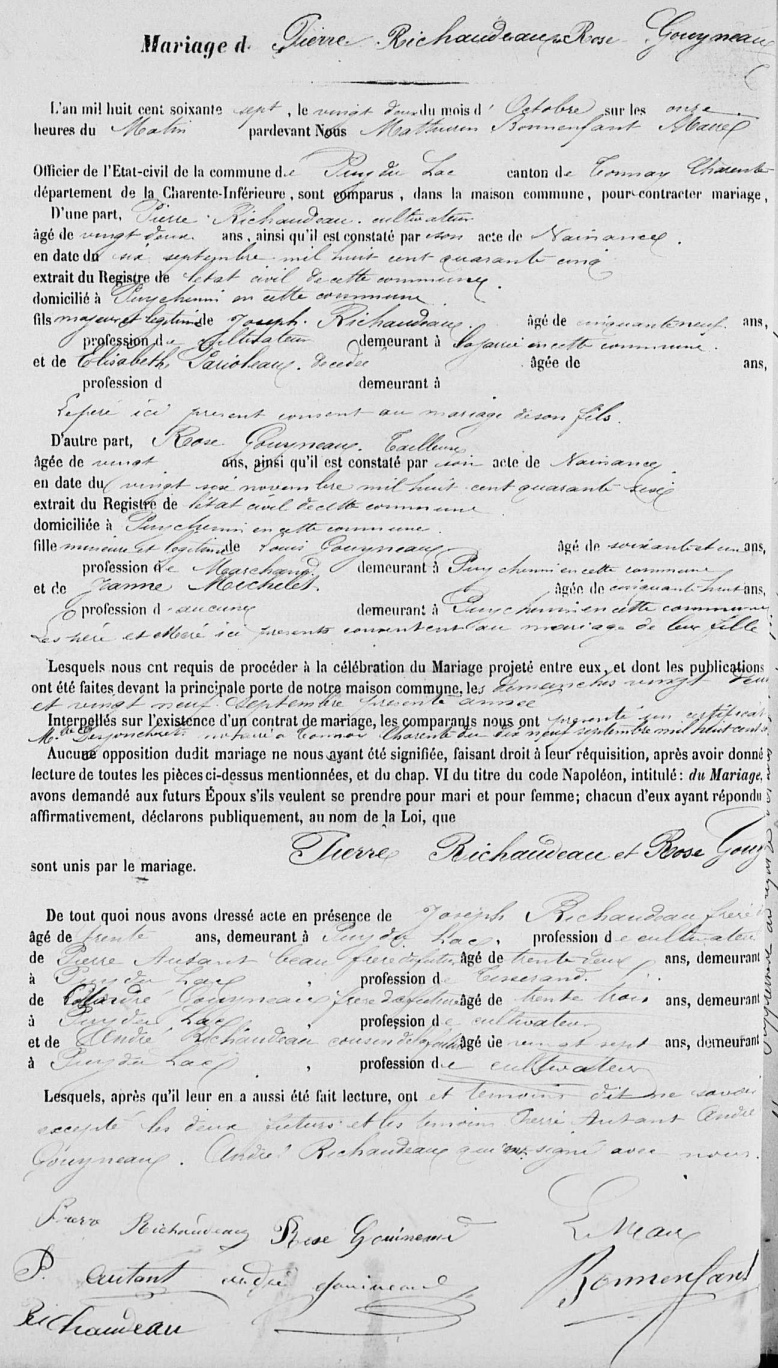 Mariage d Pierre Richaudeau & Rose Gouyneau
L'an mil huit cent soixante sept, le vingt deux du mois d' Octobre sur les onze
heures du Matin pardevant Nous Mathurin Bonnenfant Maire
Officier de l'Etat-civil de la commune de Puy du Lac canton de Tonnay Charente
département de la Charente-Inférieure, sont comparus, dans la maison commune, pour contracter mariage,
D'une part, Pierre Richaudeau cultivateur
âgé de vingt deux ans, ainsi qu'il est constaté par son acte de Naissance
en date du six septembre mil huit cent quarante cinq
extrait du Registre de l'état civil de cette commune
domicilié à Puychenin en cette commune
fils majeur et légitime de Joseph Richaudeau âgé de cinquante neuf ans,
profession de Cultivateur demeurant à en cette commune
et de Elisabeth décédée âgée de ans,
profession d demeurant à
Le père ici présent consent au mariage de son fils.
D'autre part, Rose Gouyneau Tailleuse
âgée de vingt ans, ainsi qu'il est constaté par son acte de Naissance
en date du vingt six novembre mil huit cent quarante six
extrait du Registre de l'état civil de cette commune
domiciliée à Puychenin en cette commune
fille mineure et légitime de Louis Gouyneau âgé de soixante et un ans,
profession de Marchand demeurant à Puychenin en cette commune
et de Jeanne Michelet âgée de cinquante huit ans,
profession d aucune demeurant à Puychenin en cette commune
Les père et mère ici présents consentent au mariage de leur fille
Lesquels nous ont requis de procéder à la célébration du Mariage projeté entre eux, et dont les publications
ont été faites devant la principale porte de notre maison commune, les dimanches vingt deux
et vingt neuf Septembre présente année
Interpellés sur l'existence d'un contrat de mariage, les comparants nous ont présenté un certificat
Me notaire à Tonnay Charente du dix neuf septembre mil huit cent
Aucune opposition dudit mariage ne nous ayant été signifiée, faisant droit à leur réquisition, après avoir donné
lecture de toutes les pièces ci-dessus mentionnées, et du chap. VI du titre du code Napoléon, intitulé : du Mariage,
avons demandé aux futurs Époux s'ils veulent se prendre pour mari et pour femme; chacun d'eux ayant répondu
affirmativement, déclarons publiquement, au nom de la Loi, que
Pierre Richaudeau et Rose Gouy
sont unis par le mariage.
De tout quoi nous avons dressé acte en présence de Joseph Richaudeau frère
âgé de trente ans, demeurant à Puy du Lac, profession de cultivateur
de Pierre Autant beau frère du futur âgé de trente deux ans, demeurant
à Puy du Lac, profession de Tisserand
de André Gouyneau frère de la future âgé de trente trois ans, demeurant
à Puy du Lac, profession de cultivateur
et de André Richaudeau cousin âgé de vingt sept ans, demeurant
à Puy du Lac, profession de cultivateur
Lesquels, après qu'il leur en a aussi été fait lecture, ont et témoins dit ne savoir
excepté les deux futurs et les témoins Pierre Autant André
Gouyneau. André Richaudeau qui ont signé avec nous.
Pierre Richaudeau Rose Gouineaud Le Maire
P. Autant andré gouineaud Bonnenfant
Richaudeau